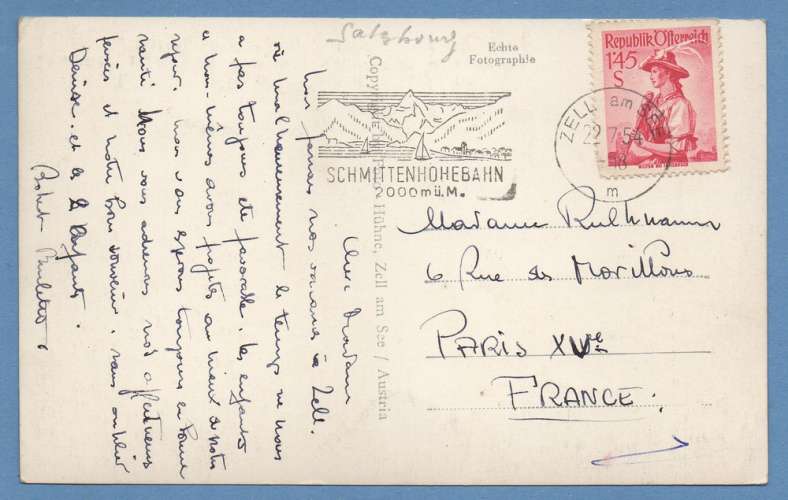 Salzbourg
Echte
Fotographie
Republik Österreich
1'45
S
ZELL am SEE
22.7.54
18
m
SCHMITTENHÖHEBAHN
2000 m ü. M.
Copyright Hühne, Zell am See / Austria
Madame
6 Rue des Morillons
PARIS XVe
FRANCE.
Chère Madame
nos vacances à Zell.
où malheureusement le temps ne nous
a pas toujours été favorable. les enfants
et nous-mêmes avons profité au mieux de notre
séjour. nous vous espérons toujours en bonne
santé. Nous vous adressons nos affectueuses
pensées et notre bon souvenir, sans oublier
Denise. et les 2 enfants.